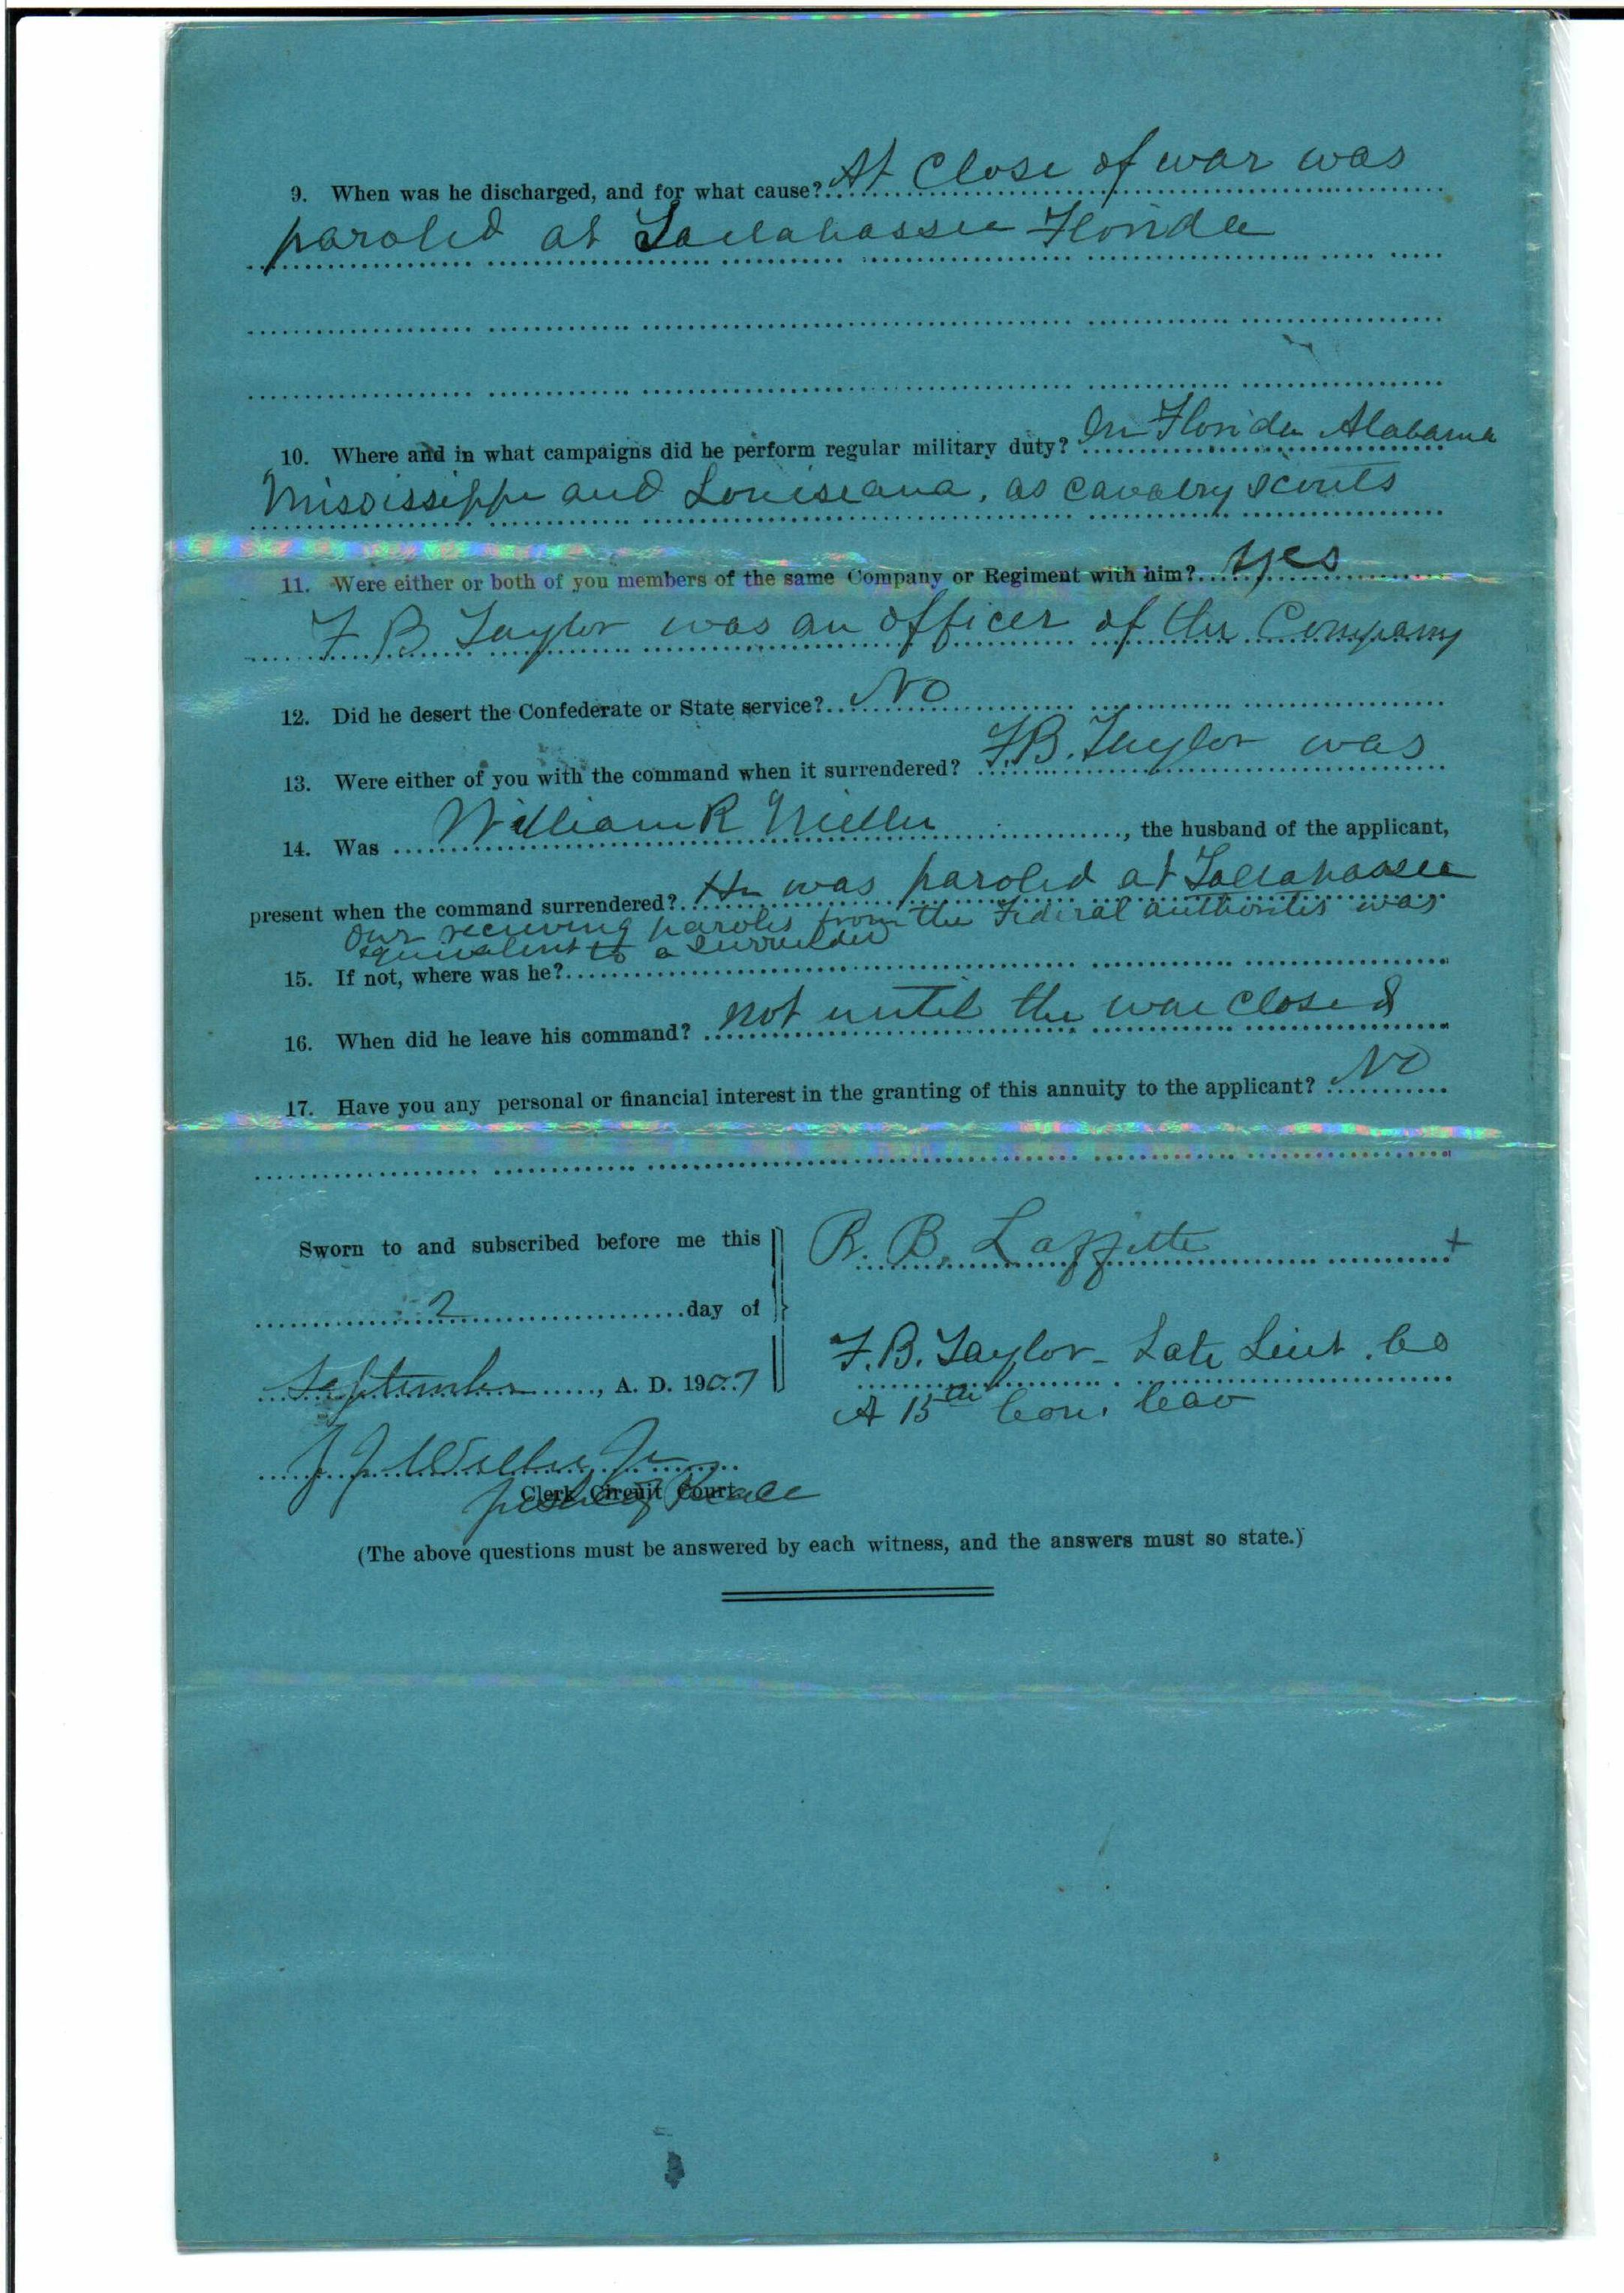 9. When was he discharged, and for what cause? At Close of war was
paroled at Tallahassee Florida
10. Where and in what campaigns did he perform regular military duty? In Florida Alabama
Mississippi and Louisiana, as cavalry scouts
11. Were either or both of you members of the same Company or Regiment with him? Yes
F B Taylor was an officer of the Company
12. Did he desert the Confederate or State service? No
13. Were either of you with the command when it surrendered? F.B. Taylor was
14. Was William R Miller, the husband of the applicant,
present when the command surrendered? He was paroled at Tallahassee
Our receiving paroles from the Federal authorities was
equivalent to a surrender
15. If not, where was he?
16. When did he leave his command? Not until the war closed
17. Have you any personal or financial interest in the granting of this annuity to the applicant? No
Sworn to and subscribed before me this
2 day of
September, A. D. 1907
R. B. Laffitte +
F. B. Taylor - Late Lieut. Co
A 15th Con. Cav
J J
Clerk Circuit Court
(The above questions must be answered by each witness, and the answers must so state.)